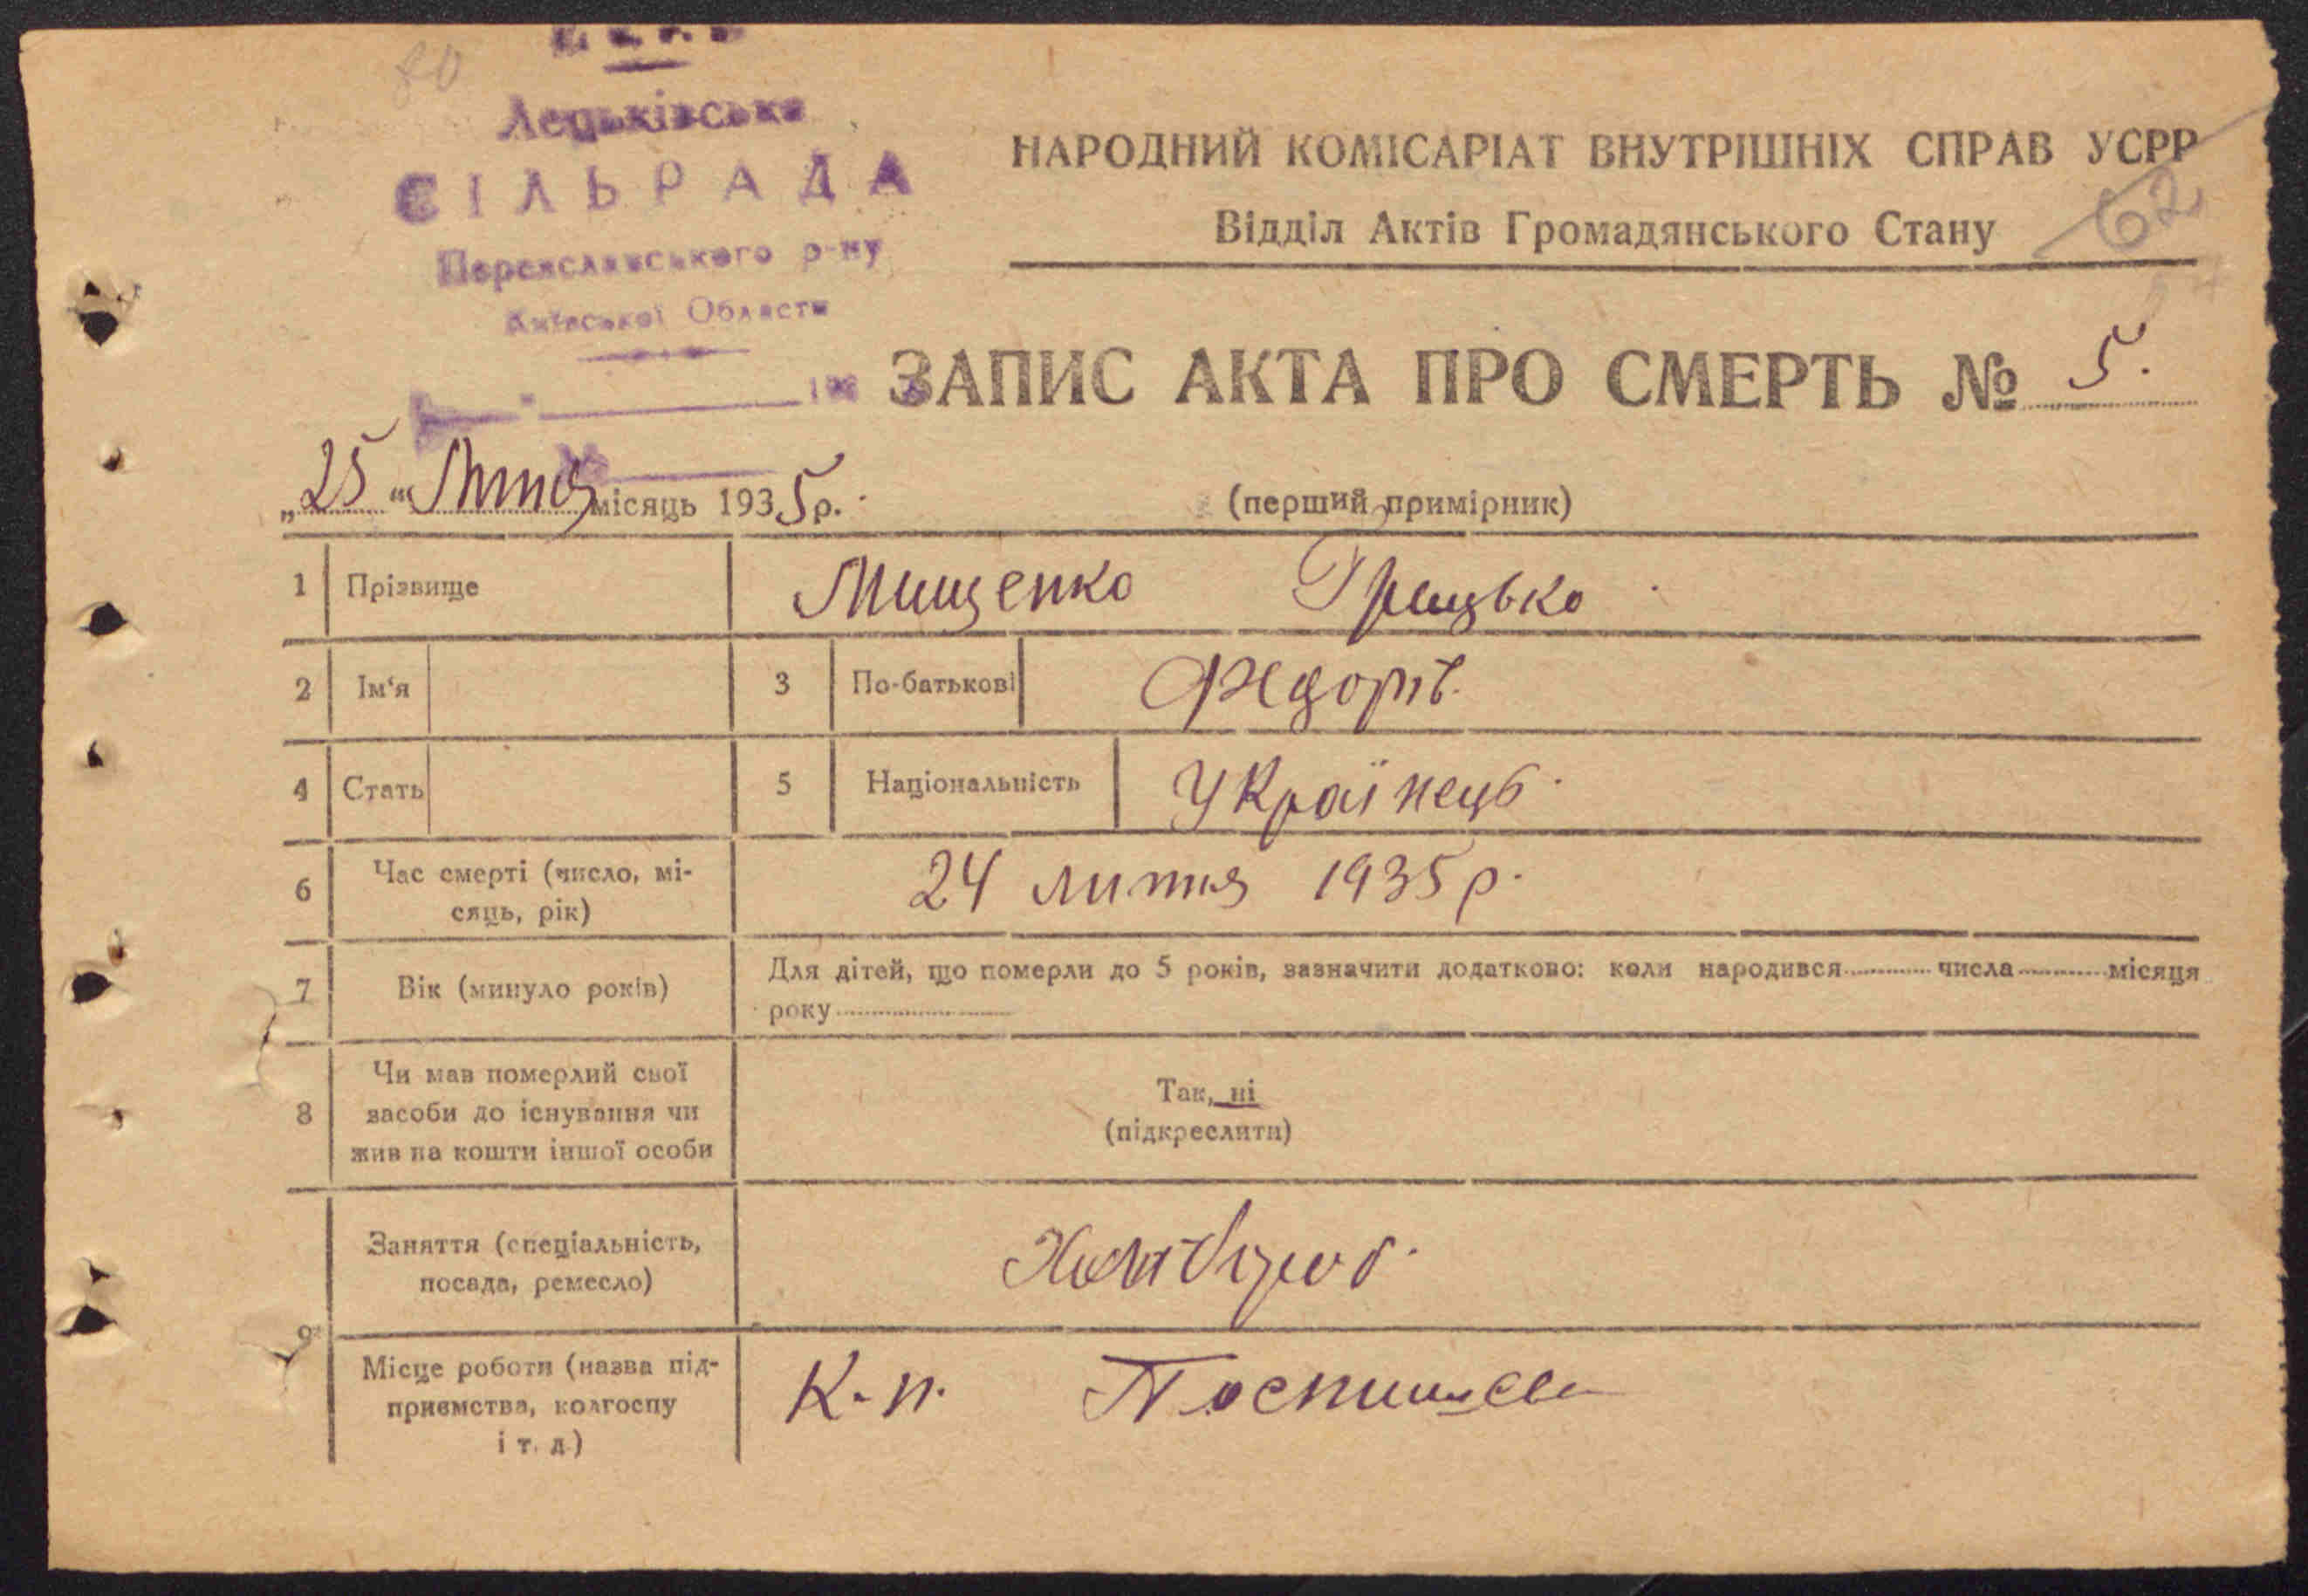 80
У.С.Р.Р.
Лецьківська
СІЛЬРАДА
Переяславського р-ну
Київської Области
193
НАРОДНИЙ КОМІСАРІАТ ВНУТРІШНІХ СПРАВ УСРР
Відділ Актів Громадянського Стану
62
ЗАПИС АКТА ПРО СМЕРТЬ № 5.
„25“ Лютия місяць 1935 р.
(перший примірник)
1 Прізвище Мищенко Грицько
2 Ім‘я 3 По-батькові Федорів.
4 Стать 5 Національність Українець.
6 Час смерті (число, мі-
сяць, рік) 24 лютия 1935 р.
7 Вік (минуло років) Для дітей, що померли до 5 років, зазначити додатково: коли народився числа місяця
року
8 Чи мав померлий свої
засоби до існування чи
жив на кошти іншої особи
Так, ні
(підкреслити)
9 Заняття (спеціальність,
посада, ремесло)
Місце роботи (назва під-
приємства, колгоспу
і т. д.)
К. п. Постишева